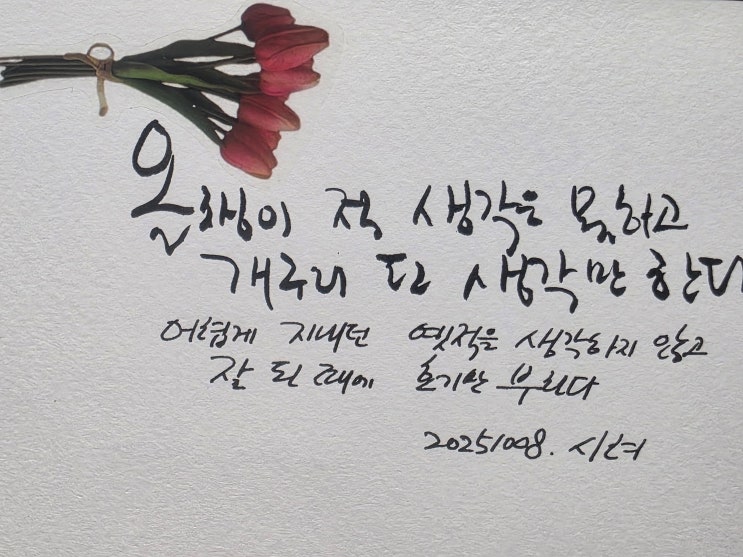 올챙이 적 생각은 못하고
개구리 된 생각만 한다
어렵게 지내던 옛적을 생각하지 않고
잘 된 때에 호기만 부린다
20251008.